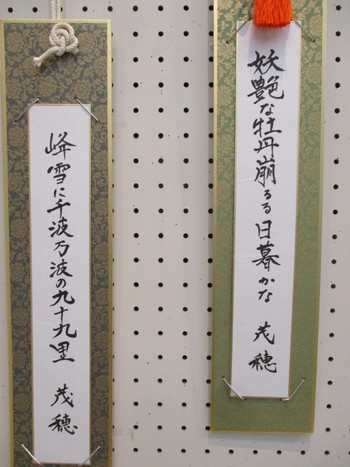 妖艶な牡丹崩るる日暮かな 茂穂
峰雪に千波万波の九十九里 茂穂